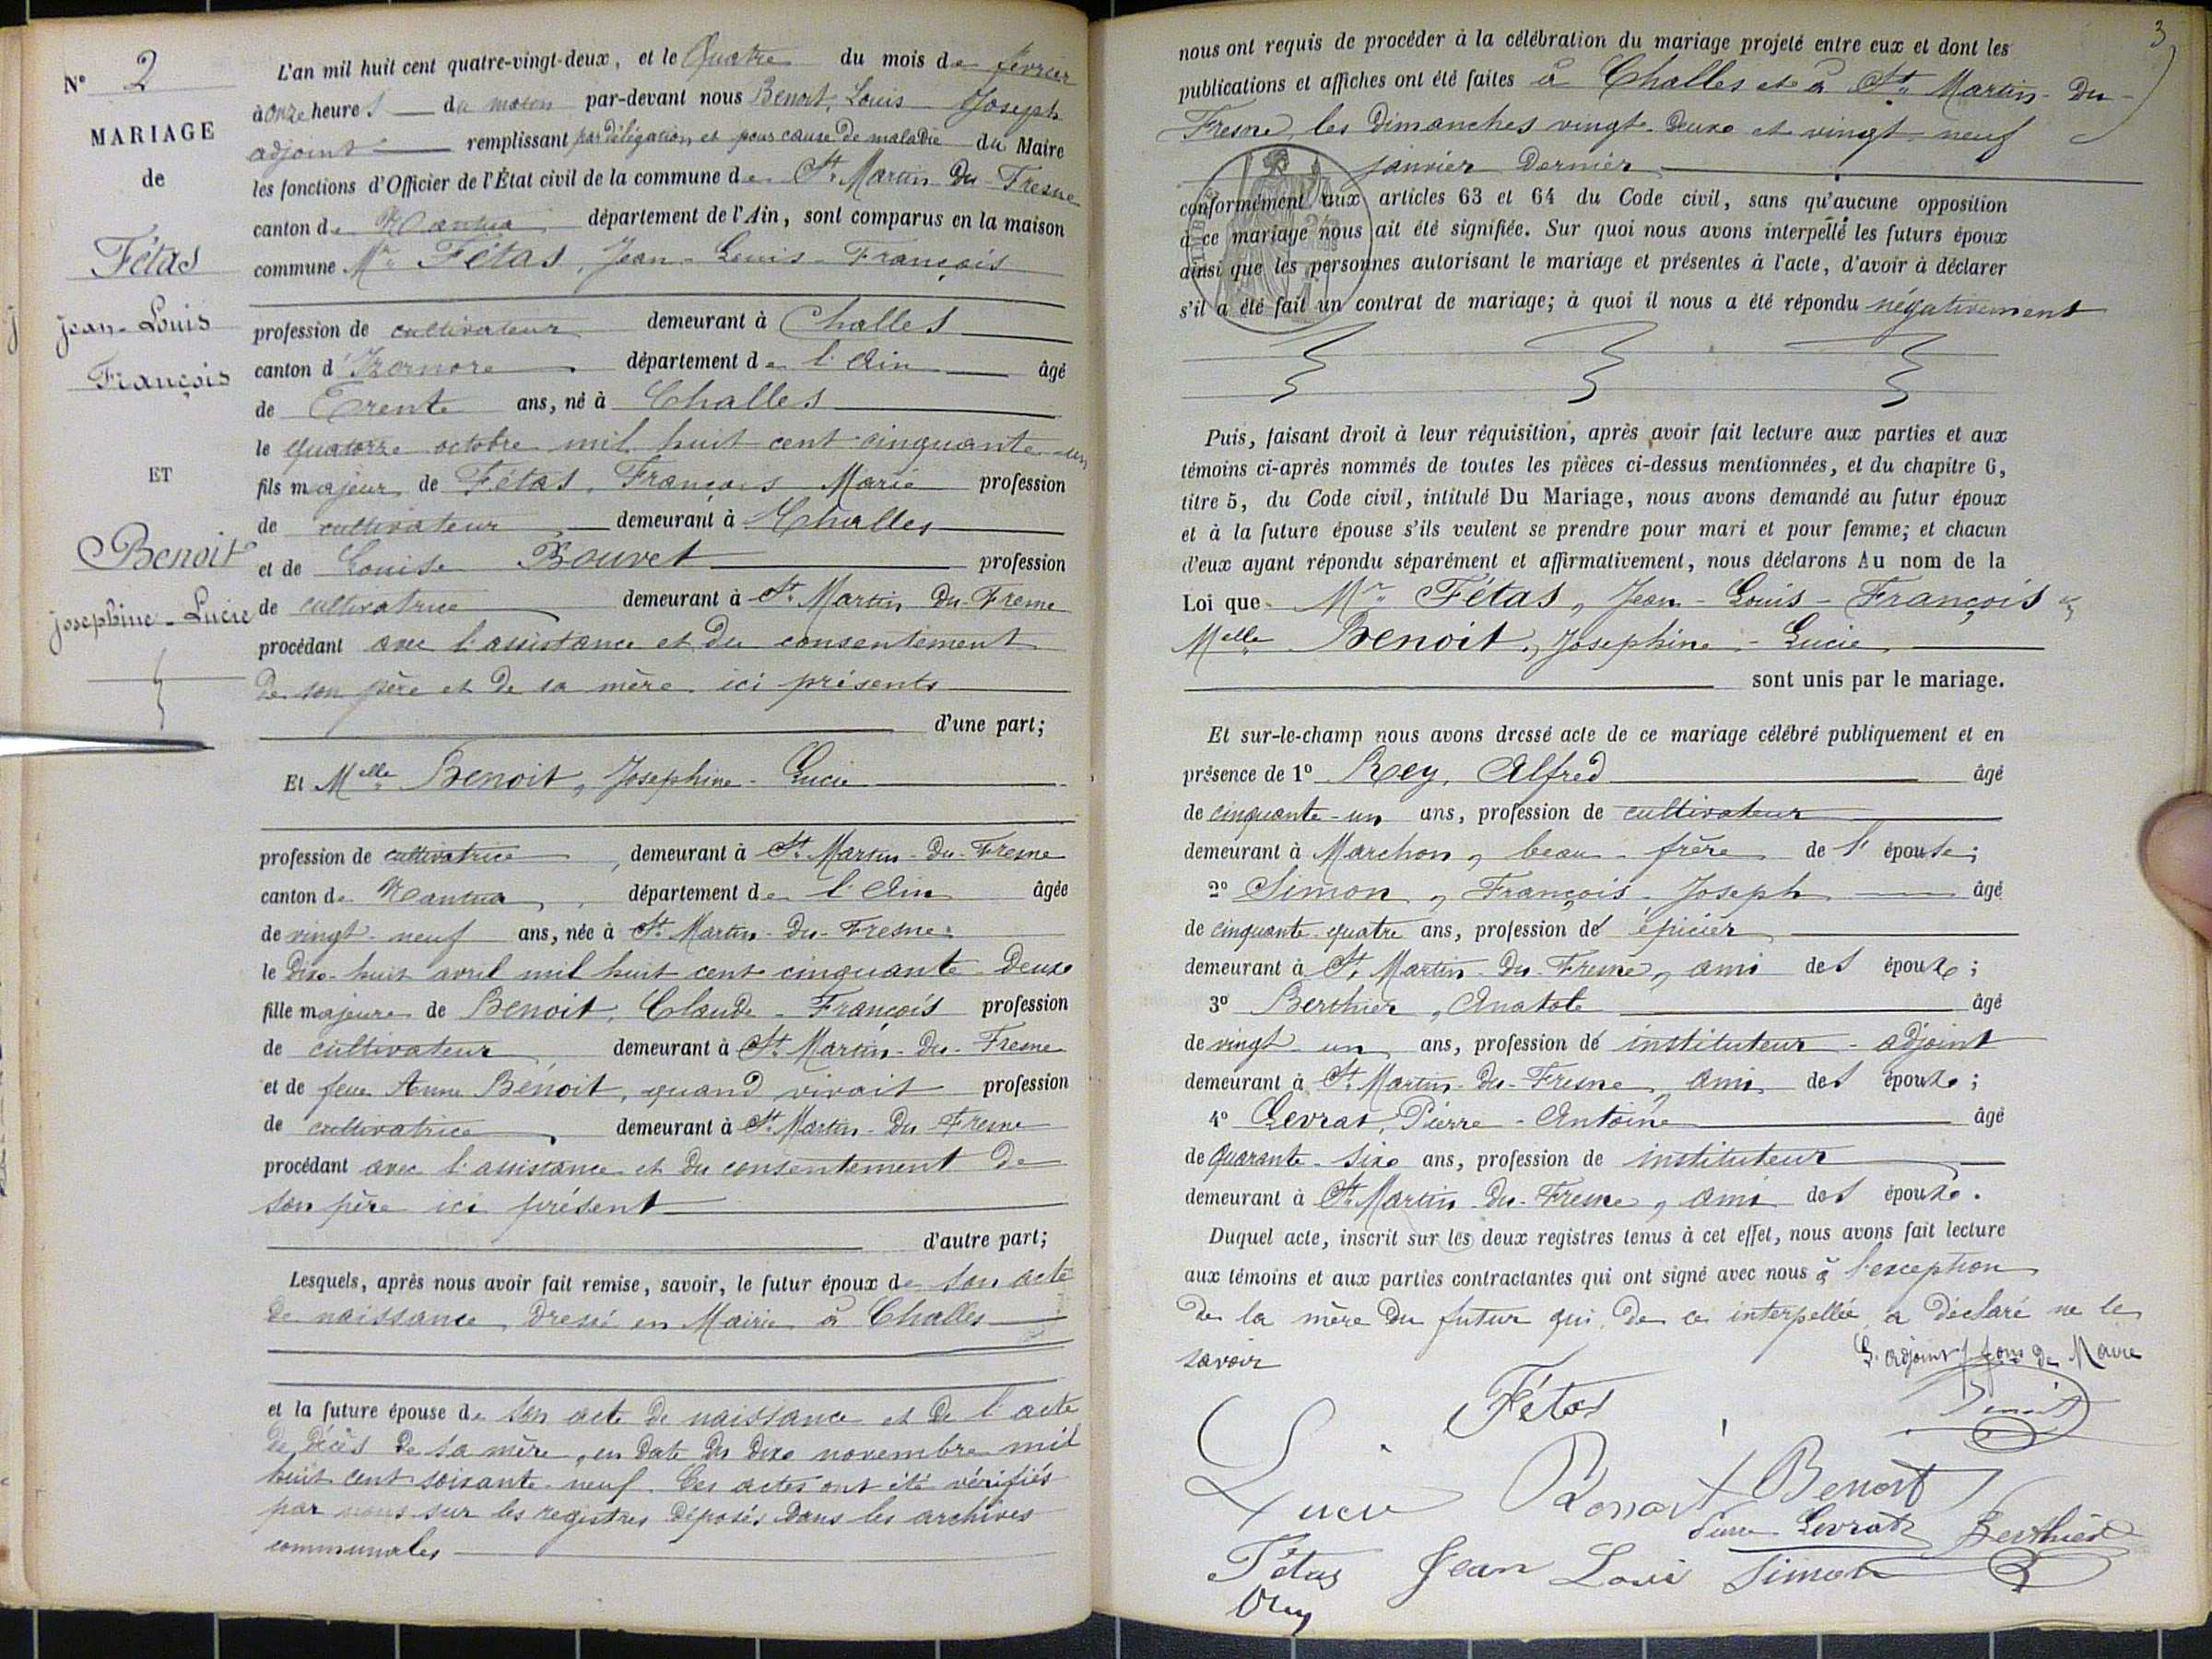 N° 2
MARIAGE
de
Fétas
Jean-Louis
François
ET
Benoit
Josephine-Lucie
L'an mil huit cent quatre-vingt-deux, et le Quatre du mois de février
à onze heures du matin par-devant nous Benoit, Louis Joseph
adjoint remplissant par délégation et pour cause de maladie du Maire
les fonctions d'Officier de l'État civil de la commune de St. Martin-du-Fresne
canton de Nantua département de l'Ain, sont comparus en la maison
commune Mr. Fétas, Jean-Louis-François
profession de cultivateur demeurant à Challes
canton d'Izernore département de l'Ain âgé
de Trente ans, né à Challes
le quatorze octobre mil huit cent cinquante-un
fils majeur de Fétas, François Marie profession
de cultivateur demeurant à Challes
et de Louise Bouvet profession
de cultivatrice demeurant à St. Martin-du-Fresne
procédant avec l'assistance et du consentement
de son père et de sa mère ici présents
d'une part;
Et Melle Benoit, Josephine-Lucie
profession de cultivatrice, demeurant à St. Martin-du-Fresne
canton de Nantua, département de l'Ain âgée
de vingt-neuf ans, née à St. Martin-du-Fresne
le dix-huit avril mil huit cent cinquante-deux
fille majeure de Benoit, Claude-François profession
de cultivateur demeurant à St. Martin-du-Fresne
et de feue Anne Bénoit, quand vivait profession
de cultivatrice, demeurant à St. Martin-du-Fresne
procédant avec l'assistance et du consentement de
son père ici présent
d'autre part;
Lesquels, après nous avoir fait remise, savoir, le futur époux de son acte
de naissance, dressé en Mairie à Challes
et la future épouse de son acte de naissance et de l'acte
de décès de sa mère, en date du dix novembre mil
huit cent soixante-neuf. Ces actes ont été vérifiés
par nous sur les registres déposés dans les archives
communales
3
nous ont requis de procéder à la célébration du mariage projeté entre eux et dont les
publications et affiches ont été faites à Challes et à St. Martin-du-
Fresne, les dimanches vingt-deux et vingt-neuf
janvier dernier
conformément aux articles 63 et 64 du Code civil, sans qu'aucune opposition
à ce mariage nous ait été signifiée. Sur quoi nous avons interpellé les futurs époux
ainsi que les personnes autorisant le mariage et présentes à l'acte, d'avoir à déclarer
s'il a été fait un contrat de mariage; à quoi il nous a été répondu négativement
Puis, faisant droit à leur réquisition, après avoir fait lecture aux parties et aux
témoins ci-après nommés de toutes les pièces ci-dessus mentionnées, et du chapitre 6,
titre 5, du Code civil, intitulé Du Mariage, nous avons demandé au futur époux
et à la future épouse s'ils veulent se prendre pour mari et pour femme; et chacun
d'eux ayant répondu séparément et affirmativement, nous déclarons Au nom de la
Loi que Mr. Fétas, Jean-Louis-François &
Melle Benoit, Josephine-Lucie
sont unis par le mariage.
Et sur-le-champ nous avons dressé acte de ce mariage célébré publiquement et en
présence de 1° Rey, Alfred âgé
de cinquante-un ans, profession de cultivateur
demeurant à Marchon, beau-frère de l'épouse;
2° Simon, François-Joseph âgé
de cinquante-quatre ans, profession de épicier
demeurant à St. Martin-du-Fresne, ami des époux;
3° Berthier, Anatole âgé
de vingt-un ans, profession de instituteur-adjoint
demeurant à St. Martin-du-Fresne, ami des époux;
4° Levrat, Pierre-Antoine âgé
de Quarante-six ans, profession de instituteur
demeurant à St. Martin-du-Fresne, ami des époux.
Duquel acte, inscrit sur les deux registres tenus à cet effet, nous avons fait lecture
aux témoins et aux parties contractantes qui ont signé avec nous à l'exception
de la mère du futur qui, de ce interpellée, a déclaré ne le
savoir
L'adjoint f fons de Maire
Fétas Benoit
Lucie Benoit Benoit
Pierre Levrat Berthier
Fétas Jean Loui Simon
Rey